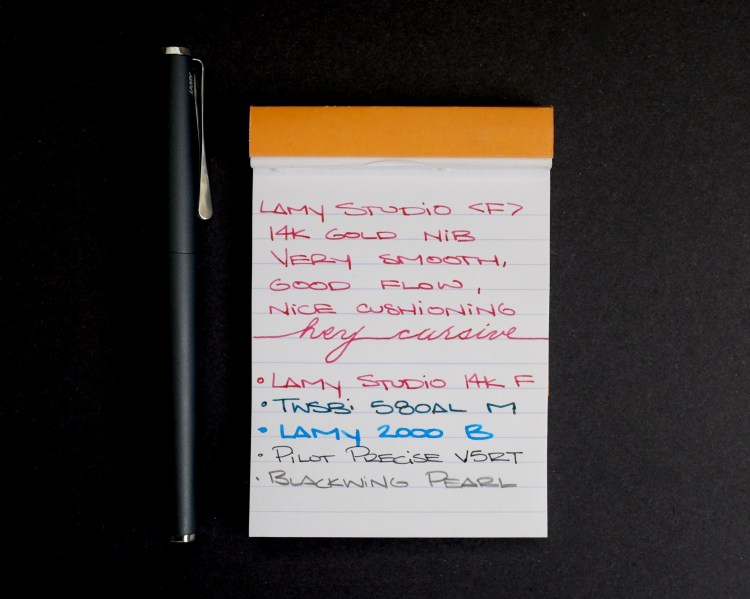 LAMY
LAMY STUDIO <F>
14K GOLD NIB
VERY SMOOTH,
GOOD FLOW,
NICE CUSHIONING
hey cursive
• LAMY STUDIO 14K F
• TWSBi 580AL M
• LAMY 2000 B
• PILOT PRECISE V5RT
• BLACKWING PEARL